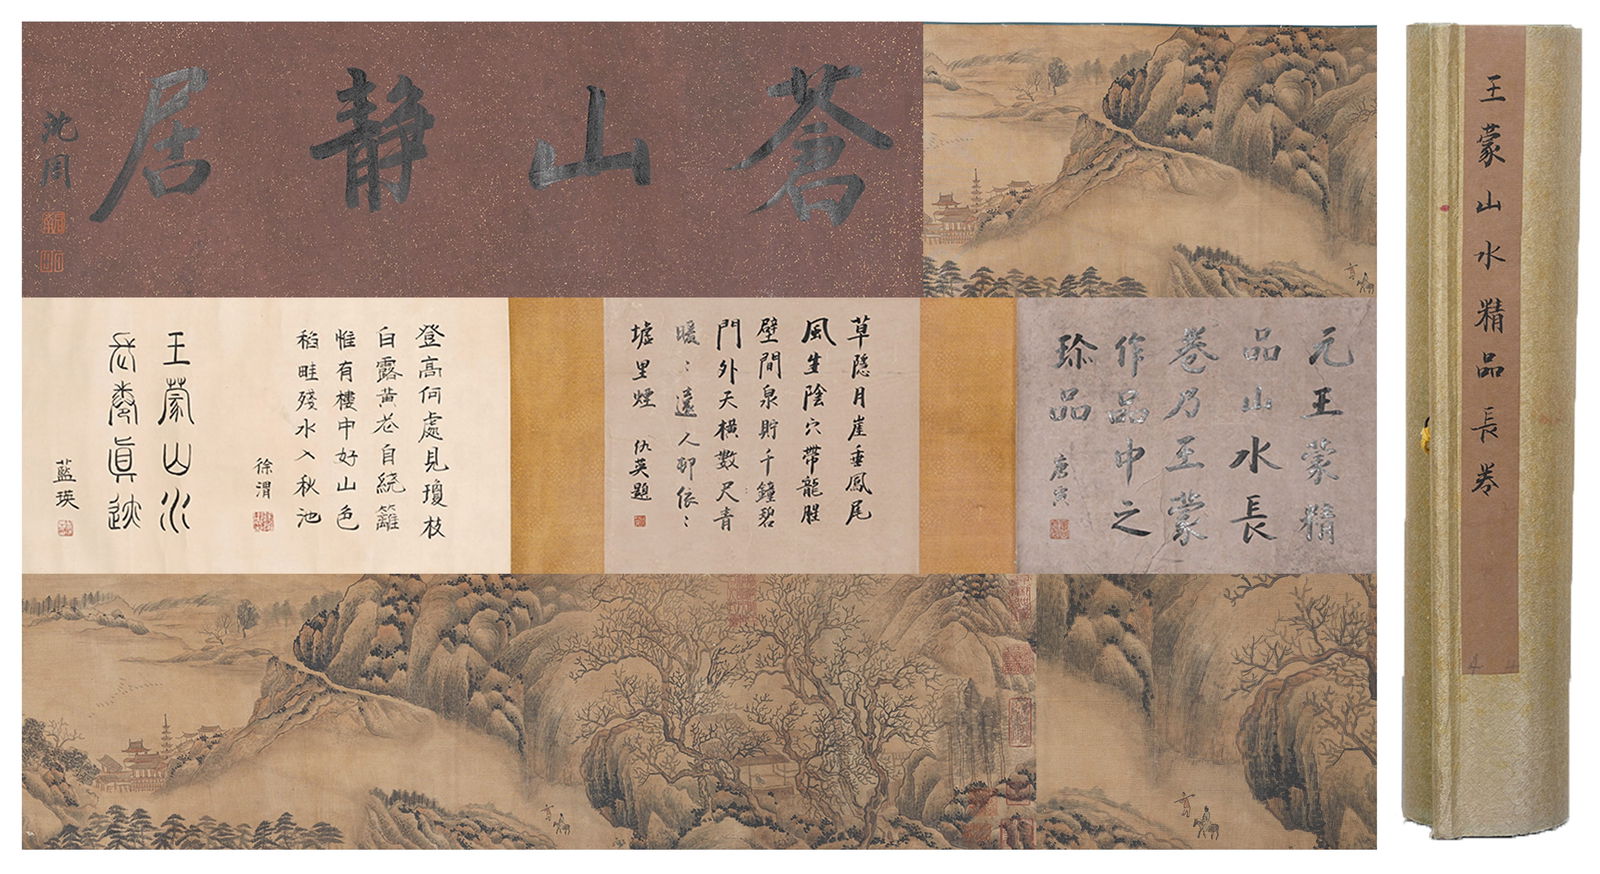 蒼山靜居
沈周
元王蒙精
品山水長
卷乃王蒙
作品中之
珎品
唐寅
草隱月崖垂鳳尾
風生陰穴帶龍腥
壁間泉貯千鐘碧
門外天橫數尺青
暖〻遠人邨依〻
墟里煙
仇英題
登高何處見瓊枝
白露黃花自繞籬
惟有樓中好山色
稻畦殘水入秋池
徐渭
王蒙山水
長卷真迹
藍瑛
王蒙山水精品長卷